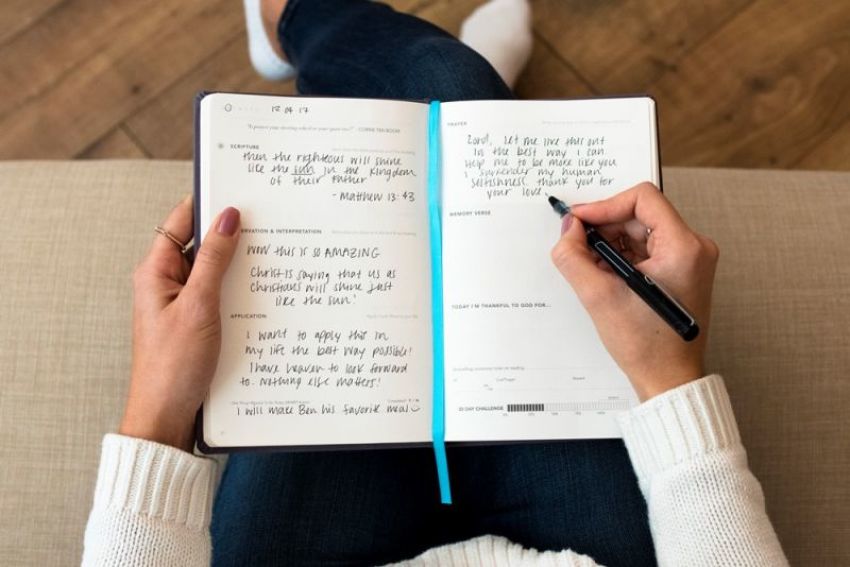 12 04 17
SCRIPTURE
then the righteous will shine
like the sun in the kingdom
of their Father
- Matthew 13:43
ERVATION & INTERPRETATION
WOW THIS IS SO AMAZING
Christ is saying that us as
Christians will shine just
like the sun!
APPLICATION
I want to apply this in
my life the best way possible!
I have heaven to look forward
to. Nothing else matters!
I will make Ben his favorite meal
PRAYER
Lord, let me live this out
in the best way I can.
Help me to be more like you
I surrender my human
selfishness. thank you for
your love.
MEMORY VERSE
TODAY I'M THANKFUL TO GOD FOR...
DAY CHALLENGE